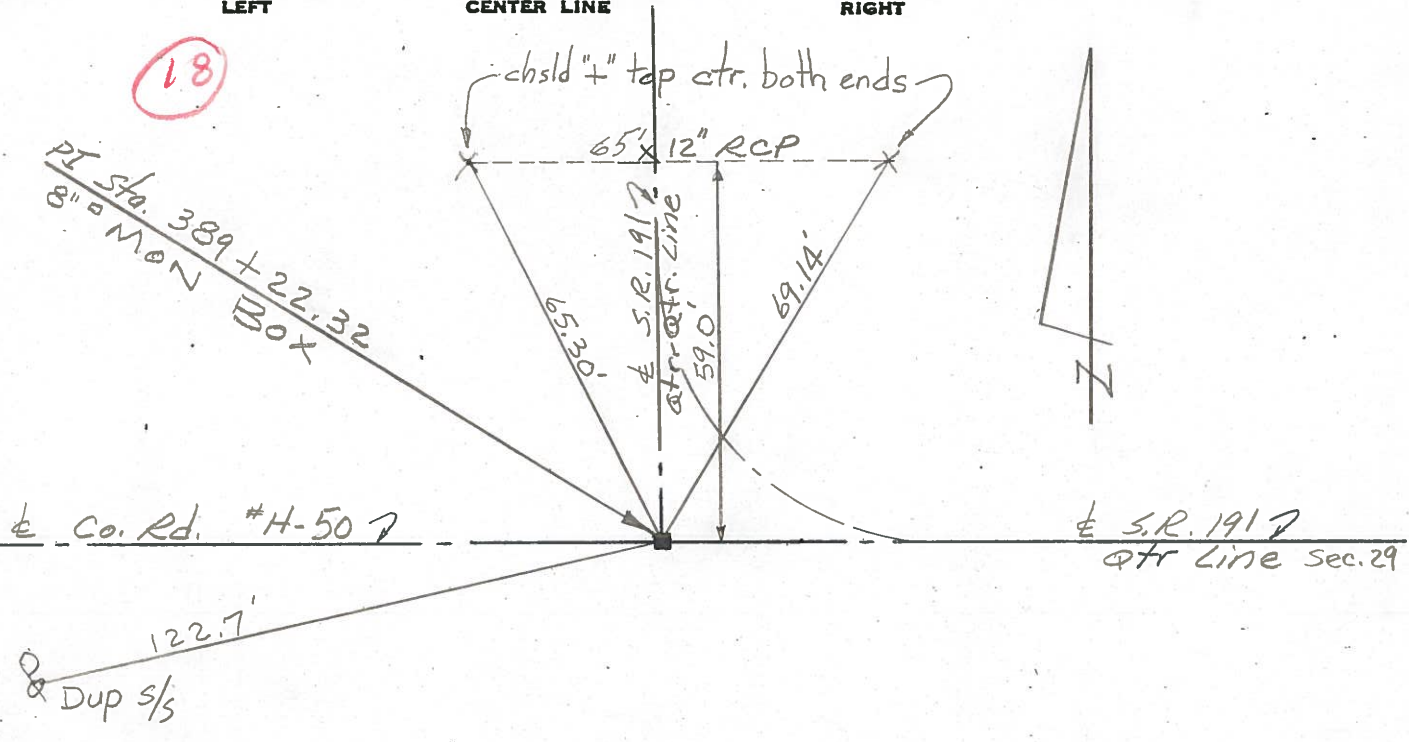 LEFT CENTER LINE RIGHT
18
chsld "+" top ctr. both ends
65' x 12" RCP
PI Sta. 389+22.32
8" MON BOX
65.30
℄ S.R. 191
Qtr-Qtr. Line
59.0'
69.14'
N
℄ Co. Rd. #H-50
℄ S.R. 191
Qtr Line Sec. 29
122.7'
Dup S/S